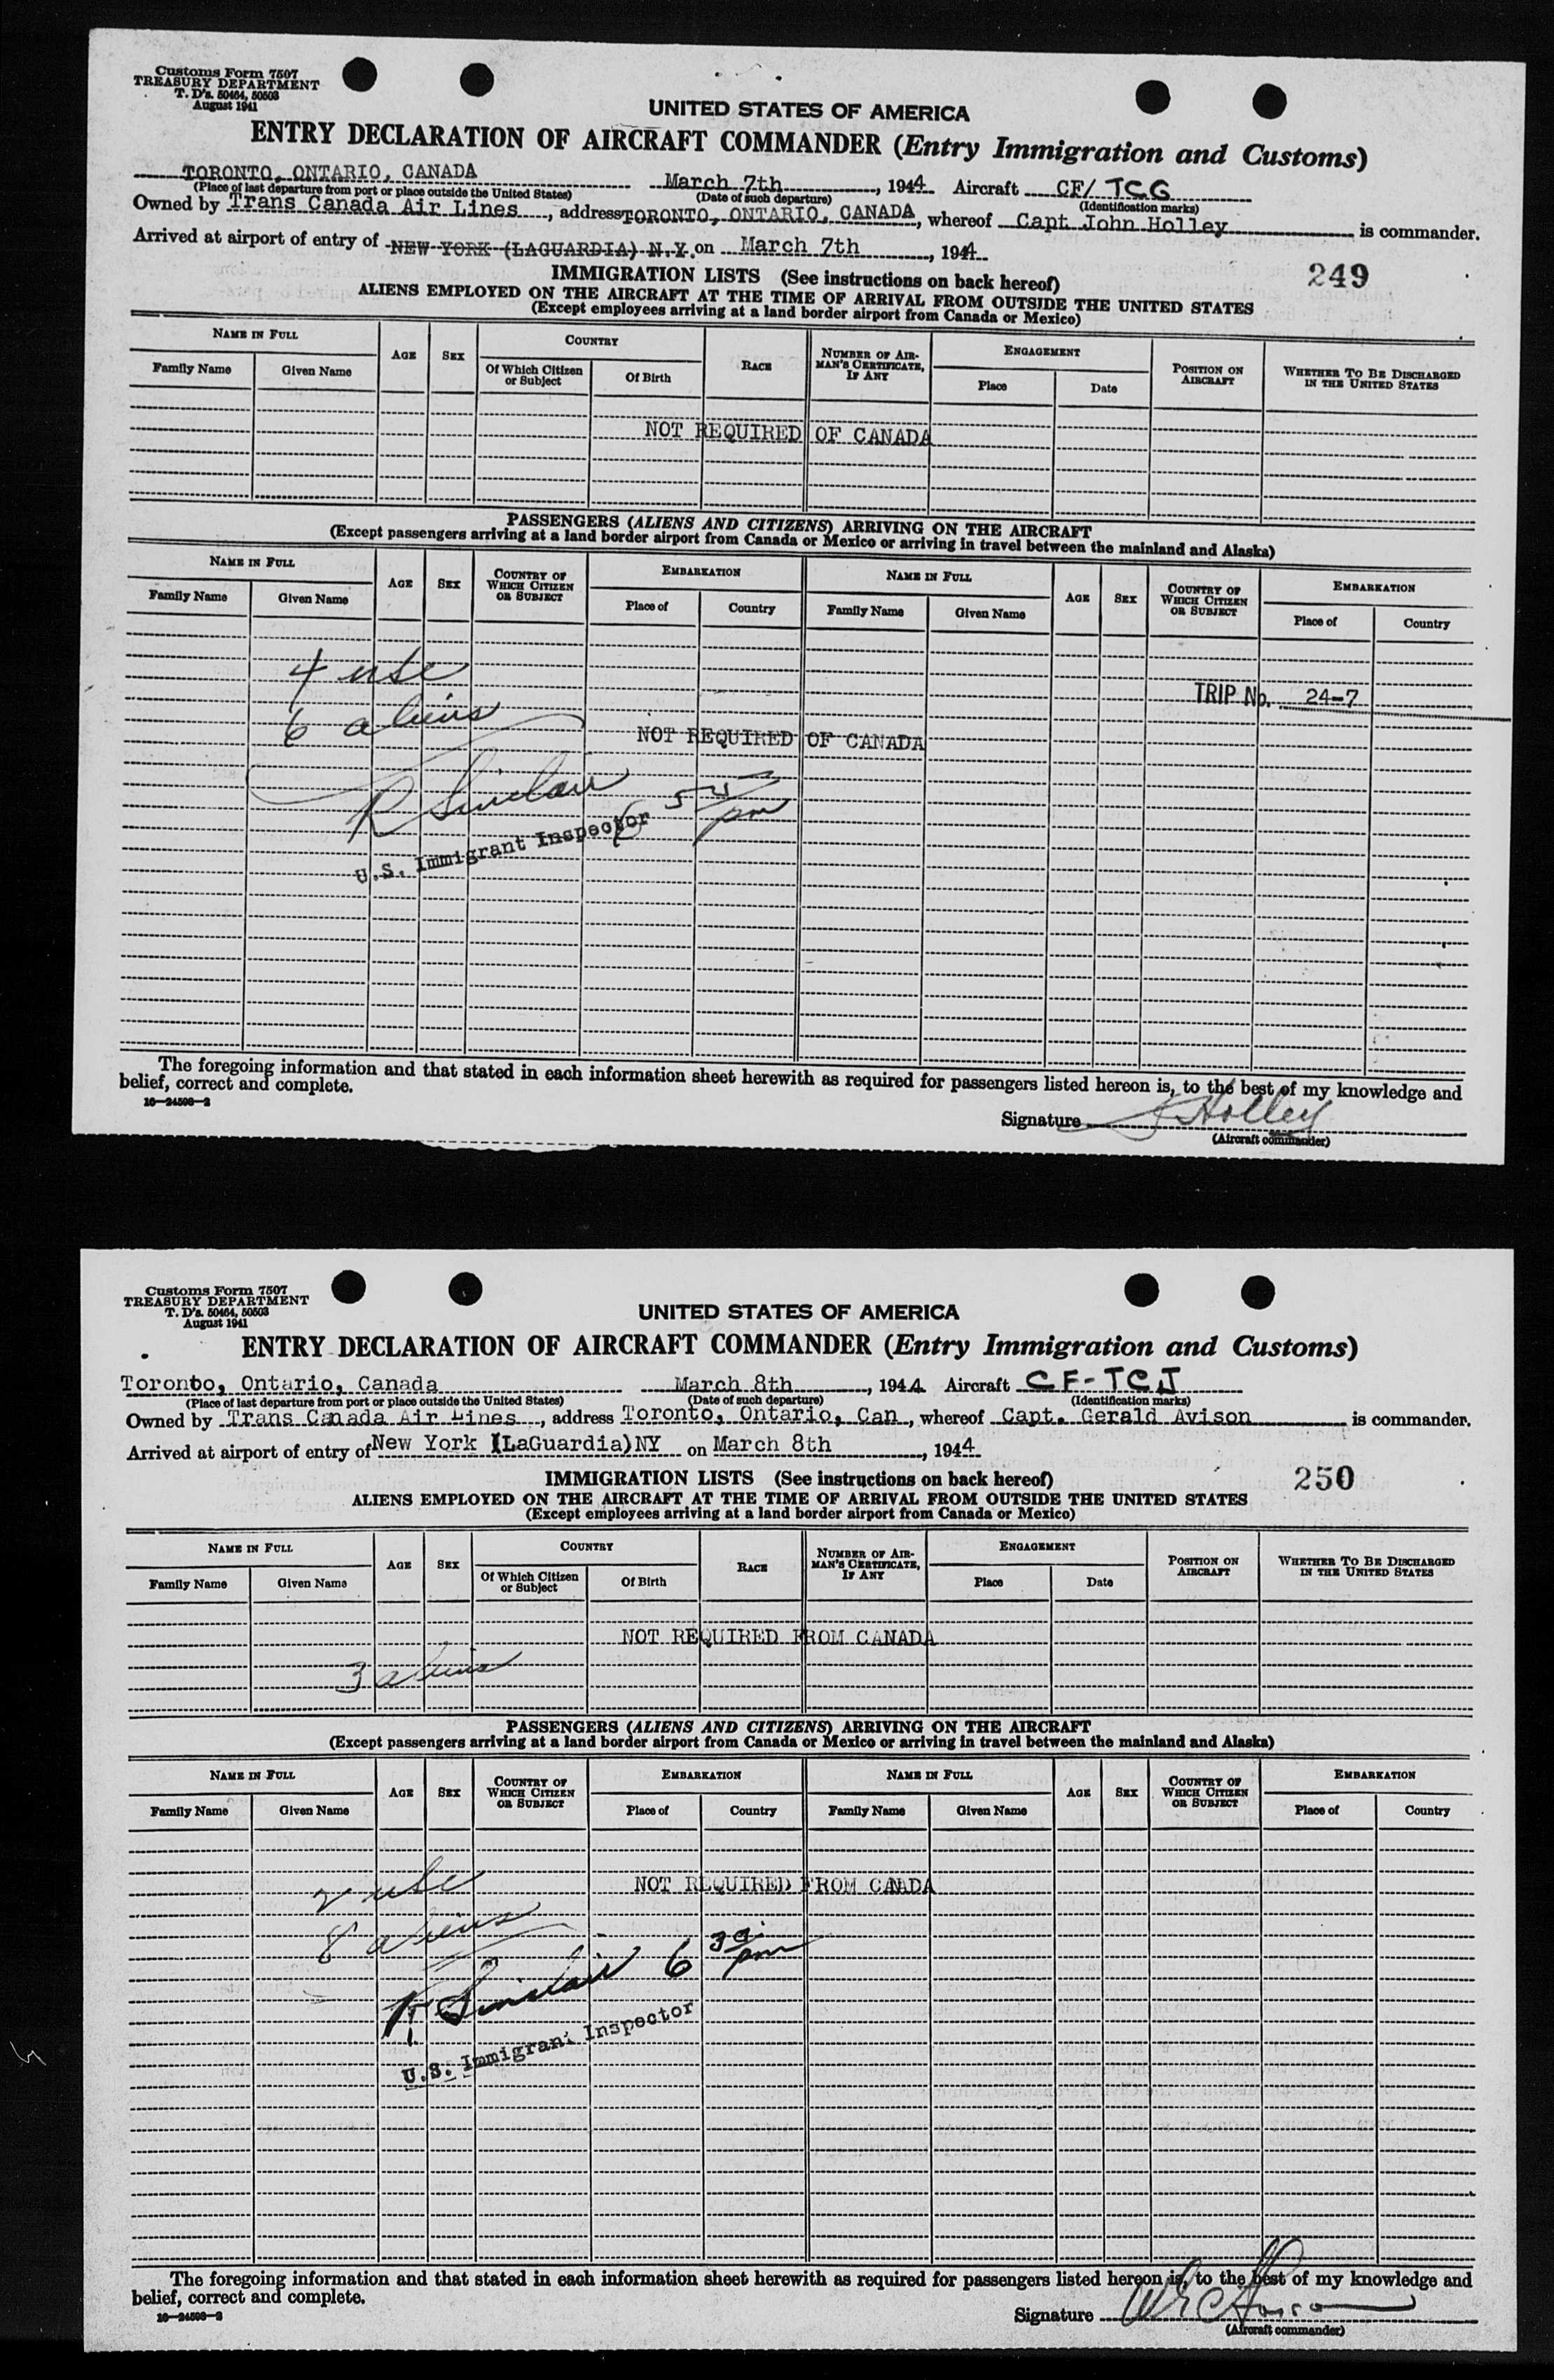 Customs Form 7507
TREASURY DEPARTMENT
T. D's. 50464, 50503
August 1941
UNITED STATES OF AMERICA
ENTRY DECLARATION OF AIRCRAFT COMMANDER (Entry Immigration and Customs)
TORONTO, ONTARIO, CANADA March 7th, 1944 Aircraft CF/ TCG
(Place of last departure from port or place outside the United States) (Date of such departure) (Identification marks)
Owned by Trans Canada Air Lines, address TORONTO, ONTARIO, CANADA, whereof Capt John Holley is commander.
Arrived at airport of entry of NEW YORK (LAGUARDIA) N.Y. on March 7th, 1944
IMMIGRATION LISTS (See instructions on back hereof) 249
ALIENS EMPLOYED ON THE AIRCRAFT AT THE TIME OF ARRIVAL FROM OUTSIDE THE UNITED STATES
(Except employees arriving at a land border airport from Canada or Mexico)
NAME IN FULL AGE SEX COUNTRY RACE NUMBER OF AIRMAN'S CERTIFICATE, IF ANY ENGAGEMENT POSITION ON AIRCRAFT WHETHER TO BE DISCHARGED IN THE UNITED STATES
Family Name Given Name Of Which Citizen or Subject Of Birth Place Date
NOT REQUIRED OF CANADA
PASSENGERS (ALIENS AND CITIZENS) ARRIVING ON THE AIRCRAFT
(Except passengers arriving at a land border airport from Canada or Mexico or arriving in travel between the mainland and Alaska)
NAME IN FULL AGE SEX COUNTRY OF WHICH CITIZEN OR SUBJECT EMBARKATION NAME IN FULL AGE SEX COUNTRY OF WHICH CITIZEN OR SUBJECT EMBARKATION
Family Name Given Name Place of Country Family Name Given Name Place of Country
4 usc
TRIP No. 24-7
6 aliens
NOT REQUIRED OF CANADA
R Sinclair 6 pm
U.S. Immigrant Inspector
The foregoing information and that stated in each information sheet herewith as required for passengers listed hereon is, to the best of my knowledge and
belief, correct and complete.
16—24598-2
Signature J Holley
(Aircraft commander)
Customs Form 7507
TREASURY DEPARTMENT
T. D's. 50464, 50503
August 1941
UNITED STATES OF AMERICA
ENTRY DECLARATION OF AIRCRAFT COMMANDER (Entry Immigration and Customs)
Toronto, Ontario, Canada March 8th, 1944 Aircraft CF-TCJ
(Place of last departure from port or place outside the United States) (Date of such departure) (Identification marks)
Owned by Trans Canada Air Lines, address Toronto, Ontario, Can, whereof Capt. Gerald Avison is commander.
Arrived at airport of entry of New York (LaGuardia)NY on March 8th, 1944
IMMIGRATION LISTS (See instructions on back hereof) 250
ALIENS EMPLOYED ON THE AIRCRAFT AT THE TIME OF ARRIVAL FROM OUTSIDE THE UNITED STATES
(Except employees arriving at a land border airport from Canada or Mexico)
NAME IN FULL AGE SEX COUNTRY RACE NUMBER OF AIRMAN'S CERTIFICATE, IF ANY ENGAGEMENT POSITION ON AIRCRAFT WHETHER TO BE DISCHARGED IN THE UNITED STATES
Family Name Given Name Of Which Citizen or Subject Of Birth Place Date
NOT REQUIRED FROM CANADA
3 aliens
PASSENGERS (ALIENS AND CITIZENS) ARRIVING ON THE AIRCRAFT
(Except passengers arriving at a land border airport from Canada or Mexico or arriving in travel between the mainland and Alaska)
NAME IN FULL AGE SEX COUNTRY OF WHICH CITIZEN OR SUBJECT EMBARKATION NAME IN FULL AGE SEX COUNTRY OF WHICH CITIZEN OR SUBJECT EMBARKATION
Family Name Given Name Place of Country Family Name Given Name Place of Country
2 usc
NOT REQUIRED FROM CANADA
8 aliens
R Sinclair 6 30 pm
U.S. Immigrant Inspector
The foregoing information and that stated in each information sheet herewith as required for passengers listed hereon is, to the best of my knowledge and
belief, correct and complete.
16—24598-2
Signature
(Aircraft commander)